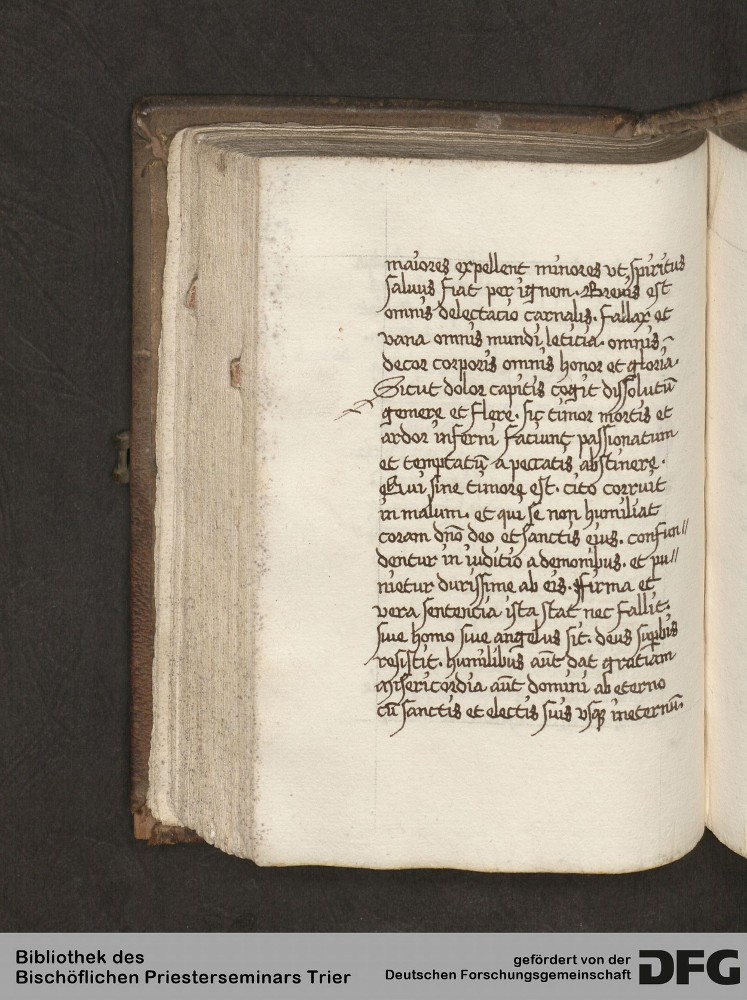 maiores expellent minores vt spiritus
saluus fiat per ignem. Breuis est
omnis delectacio carnalis. fallax et
vana omnis mundi leticia. omnis
decor corporis omnis honor et gloria.
Sicut dolor capitis cogit dissolutū
gemere et flere. sic timor mortis et
ardor inferni faciunt passionatum
et temptatū a peccatis abstinere.
Qui sine timore est. cito corruit
in malum. et qui se non humiliat
coram dn̄o deo et sanctis eius. confun//
dentur in iuditio a demonibus. et pu//
nietur durissime ab eis. Firma et
vera sentencia ista stat nec fallit.
siue homo siue angelus sit. deus suꝑbis
resistit. humilibus aūt dat gratiam
Misericordia aūt domini ab eterno
cū sanctis et electis suis vsqꝫ ineternū.
Bibliothek des
Bischöflichen Priesterseminars Trier
gefördert von der
Deutschen Forschungsgemeinschaft
DFG